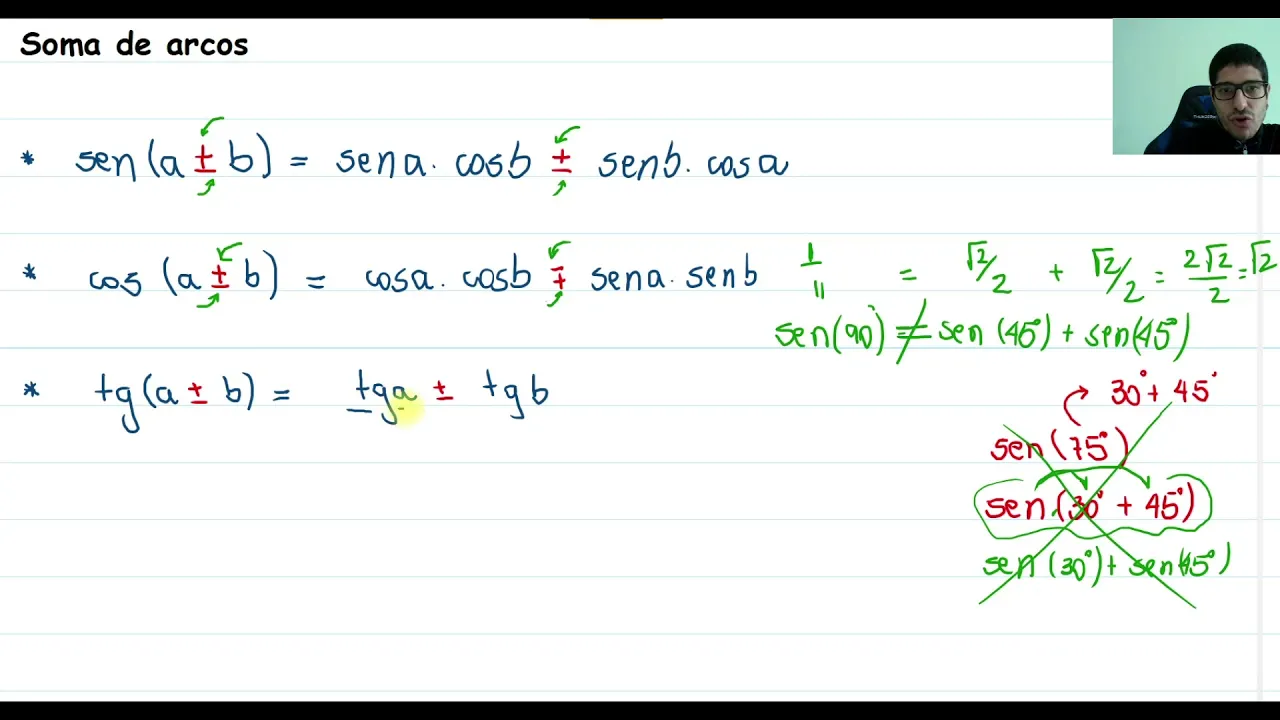 Soma de arcos
* sen(a ± b) = sena. cosb ± senb. cosa
* cos (a ± b) = cosa. cosb ∓ sena. senb
* tg(a ± b) = tga ± tgb
1 = √2/2 + √2/2 = 2√2/2 = √2
॥
sen(90°) ≠ sen(45°) + sen(45°)
30° + 45°
sen(75°)
sen(30° + 45°)
sen(30°) + sen(45°)